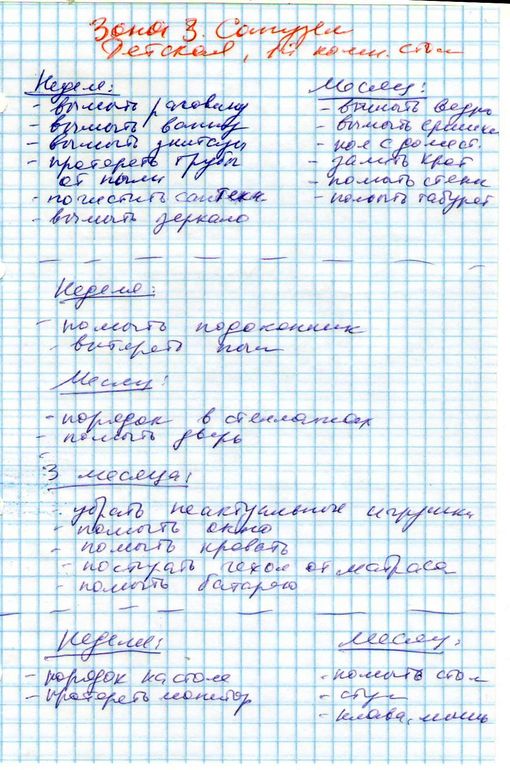 Зона 3. Санузел
Детская, комп. стол
Неделя:
- вымыть раковину
- вымыть ванну
- вымыть унитазы
- протереть трубы
от пыли
- почистить сантехн
- вымыть зеркало
Месяц:
- вымыть ведро
- вымыть ершики
- пол с домест.
- залить крот
- помыть стены
- помыть табурет
Неделя:
- помыть подоконник
- вытереть пыль
Месяц:
- порядок в стеллажах
- помыть дверь
3 месяца:
убрать неактуальные игрушки
- помыть окно
- помыть кровать
- постирать чехол от матраса
- помыть батарею
Неделя:
- порядок на столе
- протереть монитор
Месяц:
- помыть стол
- стул
- клава, мышь